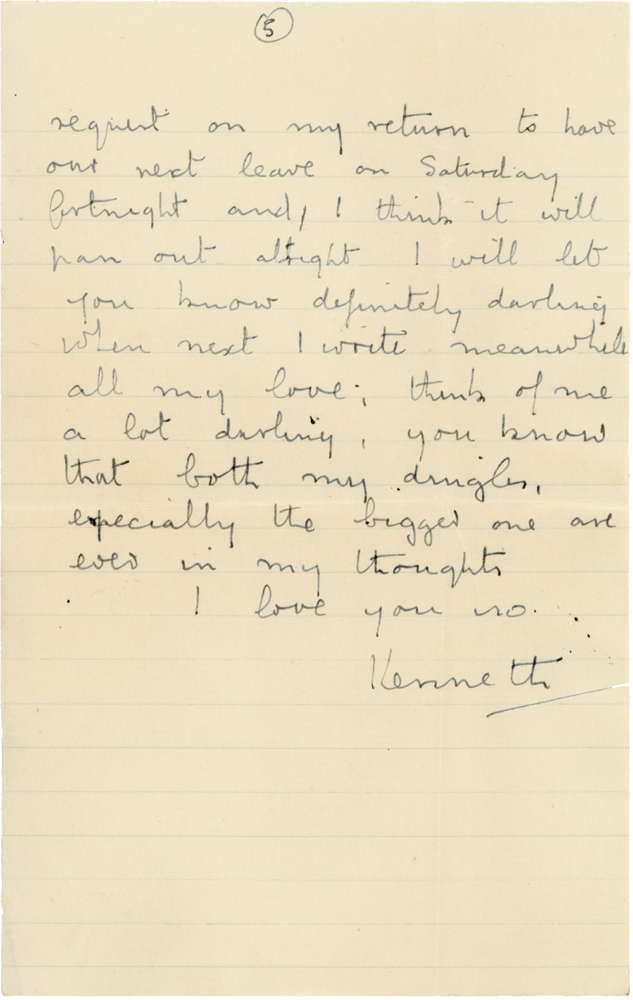 5
request on my return to have
our next leave on Saturday
fortnight and, I think it will
pan out altright I will let
you know definitely darling
when next I write meanwhile
all my love; think of me
a lot darling, you know
that both my
especially the bigger one are
ever in my thoughts
I love you so.
Kenneth